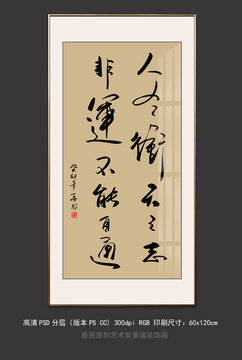 人有衝天之志
非運不能自通
癸卯年 書
高清PSD分层（版本PS CC）300dpi RGB 印刷尺寸：60x120cm
雅图原创艺术背景墙装饰画